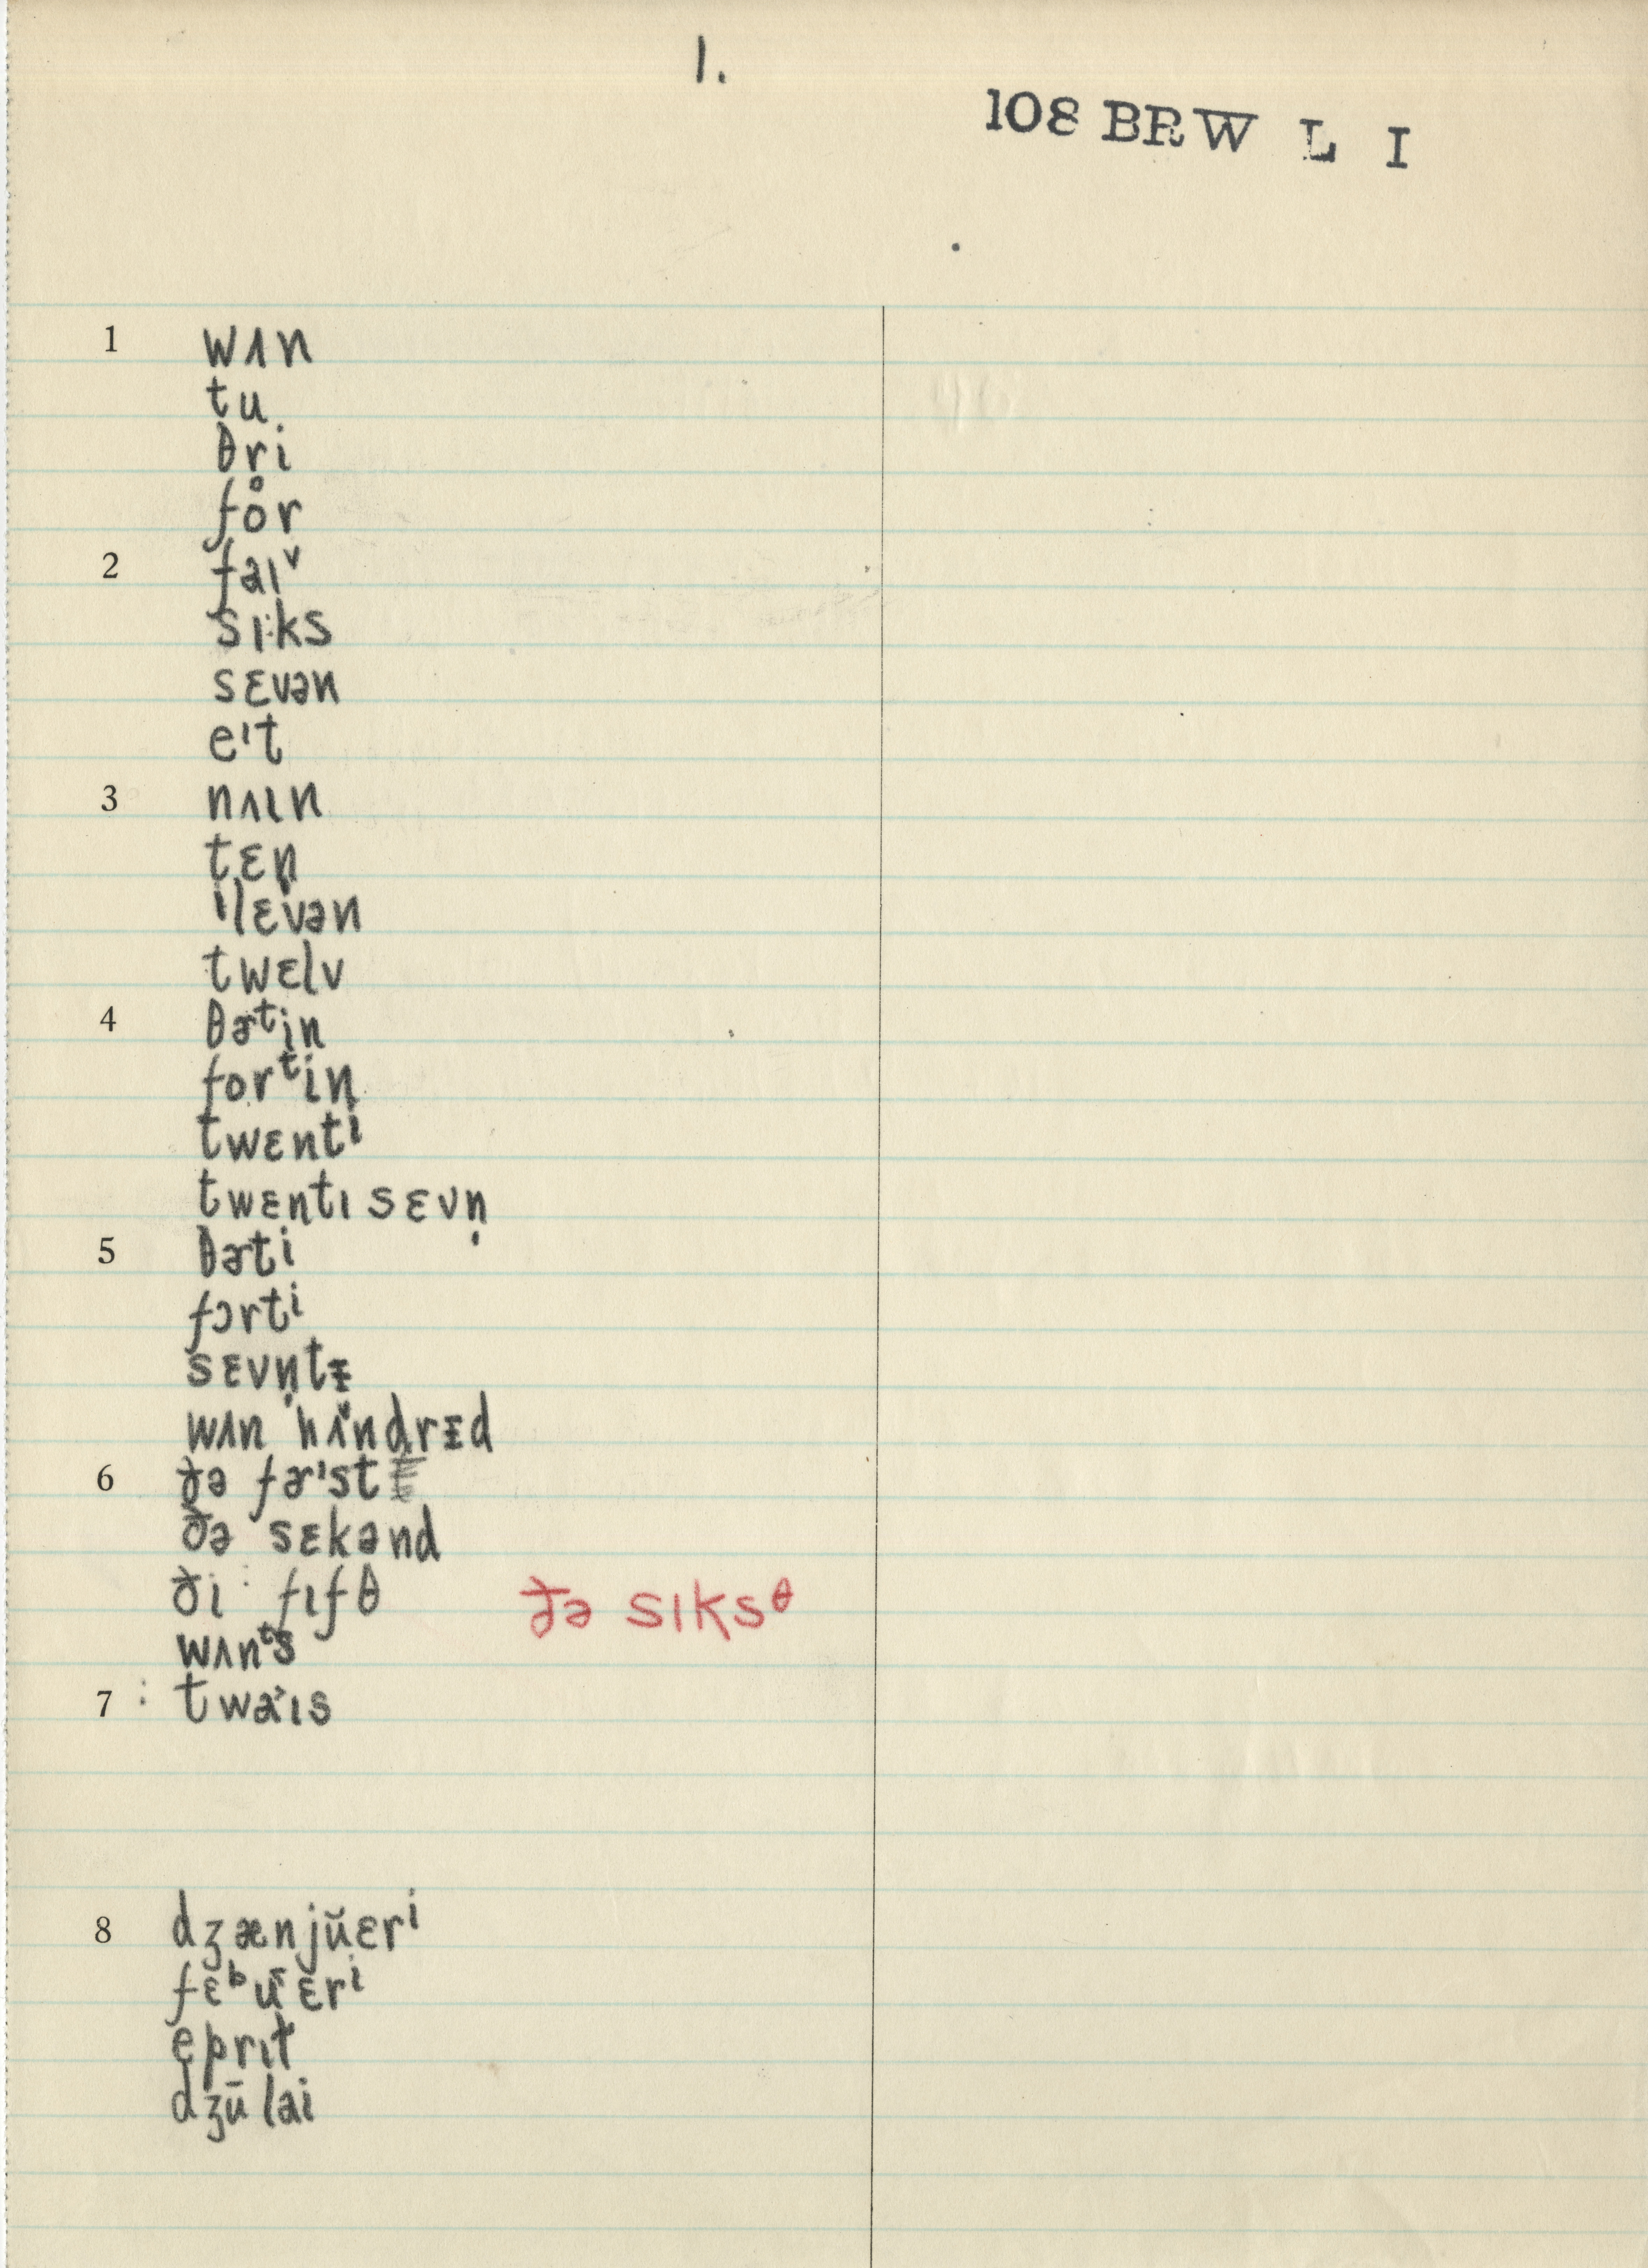 1.
108 BRW L I
1 wʌn
tu
θri
fo̊r
2 faɪᵛ
sɪks
sɛvən
eᶦt
3 nʌɪn
tɛn
ɪlɛvən
twɛlv
4 θɚᵗin
forᵗin
twɛntⁱ
twɛntɪ sɛvn̩
5 θɚtⁱ
fɔrtⁱ
sɛvn̩tᵻ
wʌn hʌ̌ndrᵻd
6 ðə fɚᶦst
ðə sɛkənd
ði fɪfθ ðə sɪksᶿ
wʌnᵗs
7 twa˃ɪs
8 dʒænjŭɛrⁱ
fɛᵇu̯ɛrⁱ
eprɪɫ
dʒūlai